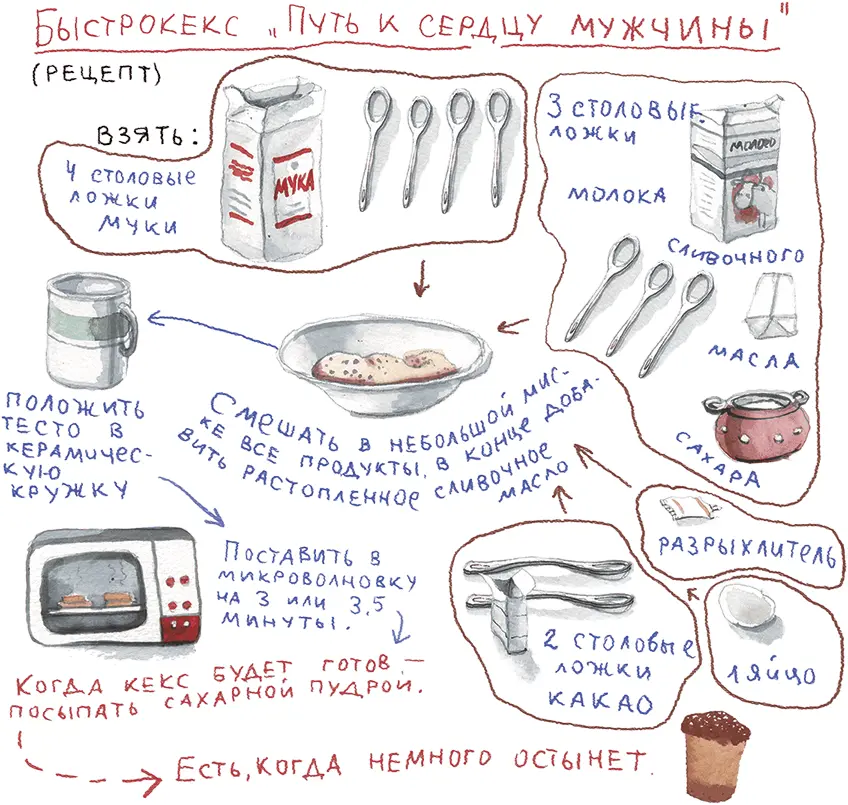 Быстрокекс „Путь к сердцу мужчины"
(рецепт)
Взять:
4 столовые
ложки
муки
МУКА
3 столовые
ложки
молоко
молока
сливочного
масла
сахара
Смешать в небольшой мис-
ке все продукты, в конце доба-
вить растопленное сливочное
масло
Положить
тесто в
керамичес-
кую
кружку
разрыхлитель
Поставить в
микроволновку
на 3 или 3,5
минуты.
2 столовые
ложки
какао
1 яйцо
Когда кекс будет готов –
посыпать сахарной пудрой.
Есть, когда немного остынет.